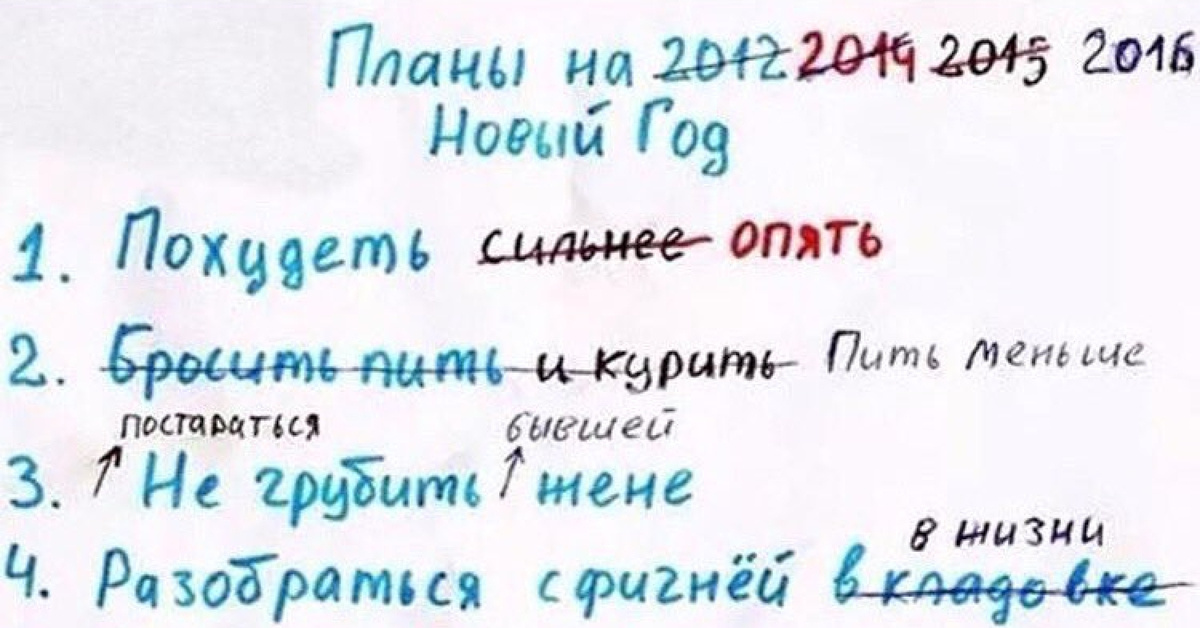 Планы на 2012 2014 2015 2016
Новый Год
1. Похудеть сильнее опять
2. Бросить пить и курить Пить меньше
постараться бывшей
3. Не грубить жене
в жизни
4. Разобраться с фигнёй в кладовке